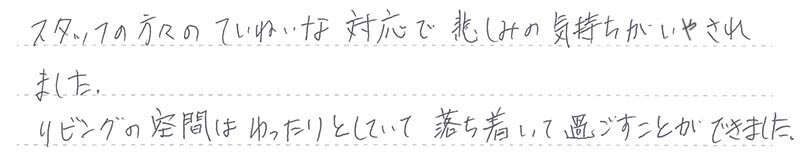 スタッフの方々のていねいな対応で悲しみの気持ちがいやされ
ました。
リビングの空間はゆったりとしていて落ち着いて過ごすことができました。